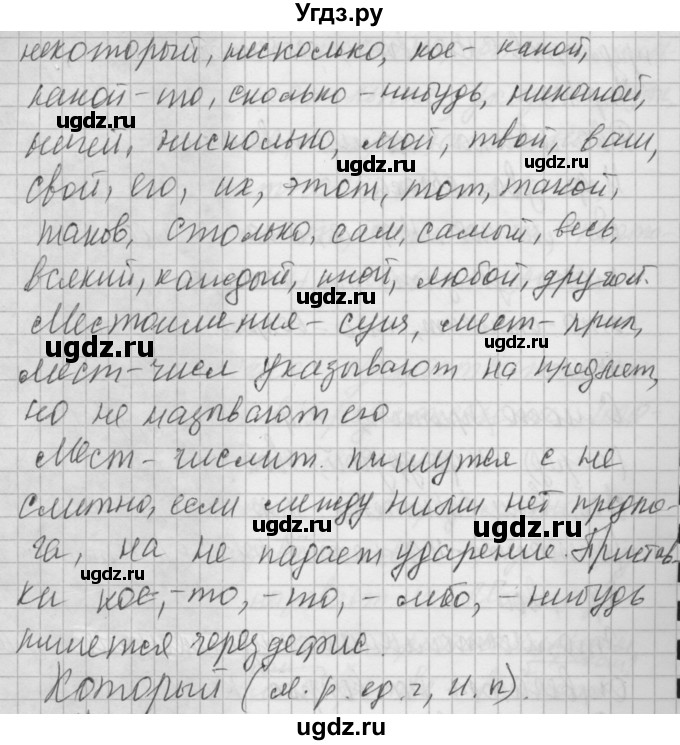 Угдз.ру
некоторый, несколько, кое-какой,
какой-то, сколько-нибудь, никакой,
ugdz.ru
ничей, нисколько, мой, твой, ваш,
ugdz.ru
ugdz.ru
свой, его, их, этот, тот, такой,
таков, столько, сам, самый, весь,
всякий, каждый, иной, любой, другой.
ugdz.ru
Местоимения-сущ, мест-прил,
ugdz.ru
ugdz.ru
мест-числ указывают на предмет,
но не называют его
Мест-числит. пишутся с не
слитно, если между ними нет предло-
ugdz.ru
ugdz.ru
га, на не падает ударение. Пристав-
ugdz.ru
ки кое-, -то, -то, -либо, -нибудь
пишется через дефис.
Который (м.р. ед.ч, И.п).
ugdz.ru
ugdz.ru